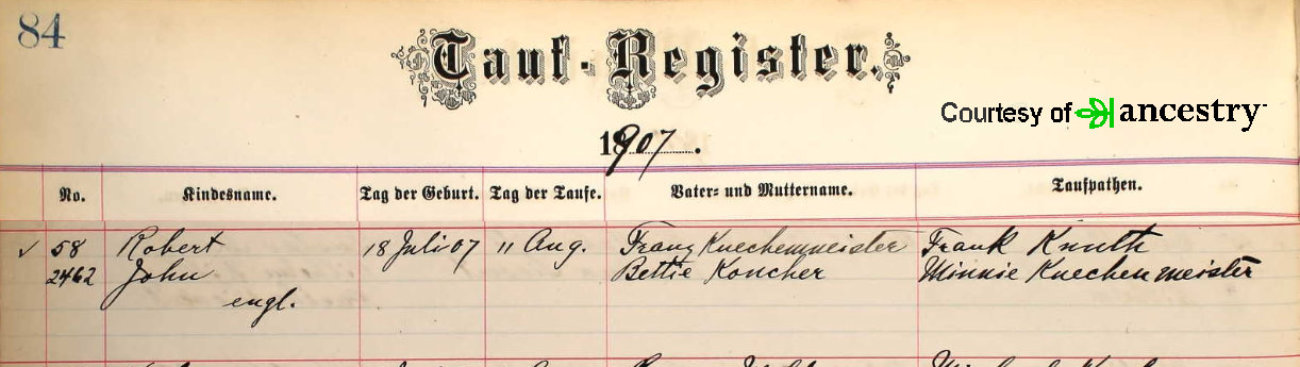 84
Tauf-Register.
Courtesy of ancestry
1907.
No. Kindesname. Tag der Geburt. Tag der Taufe. Vater- und Muttername. Taufpathen.
✓ 58 Robert 18 Juli 07 11 Aug. Franz Kuechenmeister Frank Knuth
2462 John Bettie Koncher Minnie Kuechenmeister
engl.